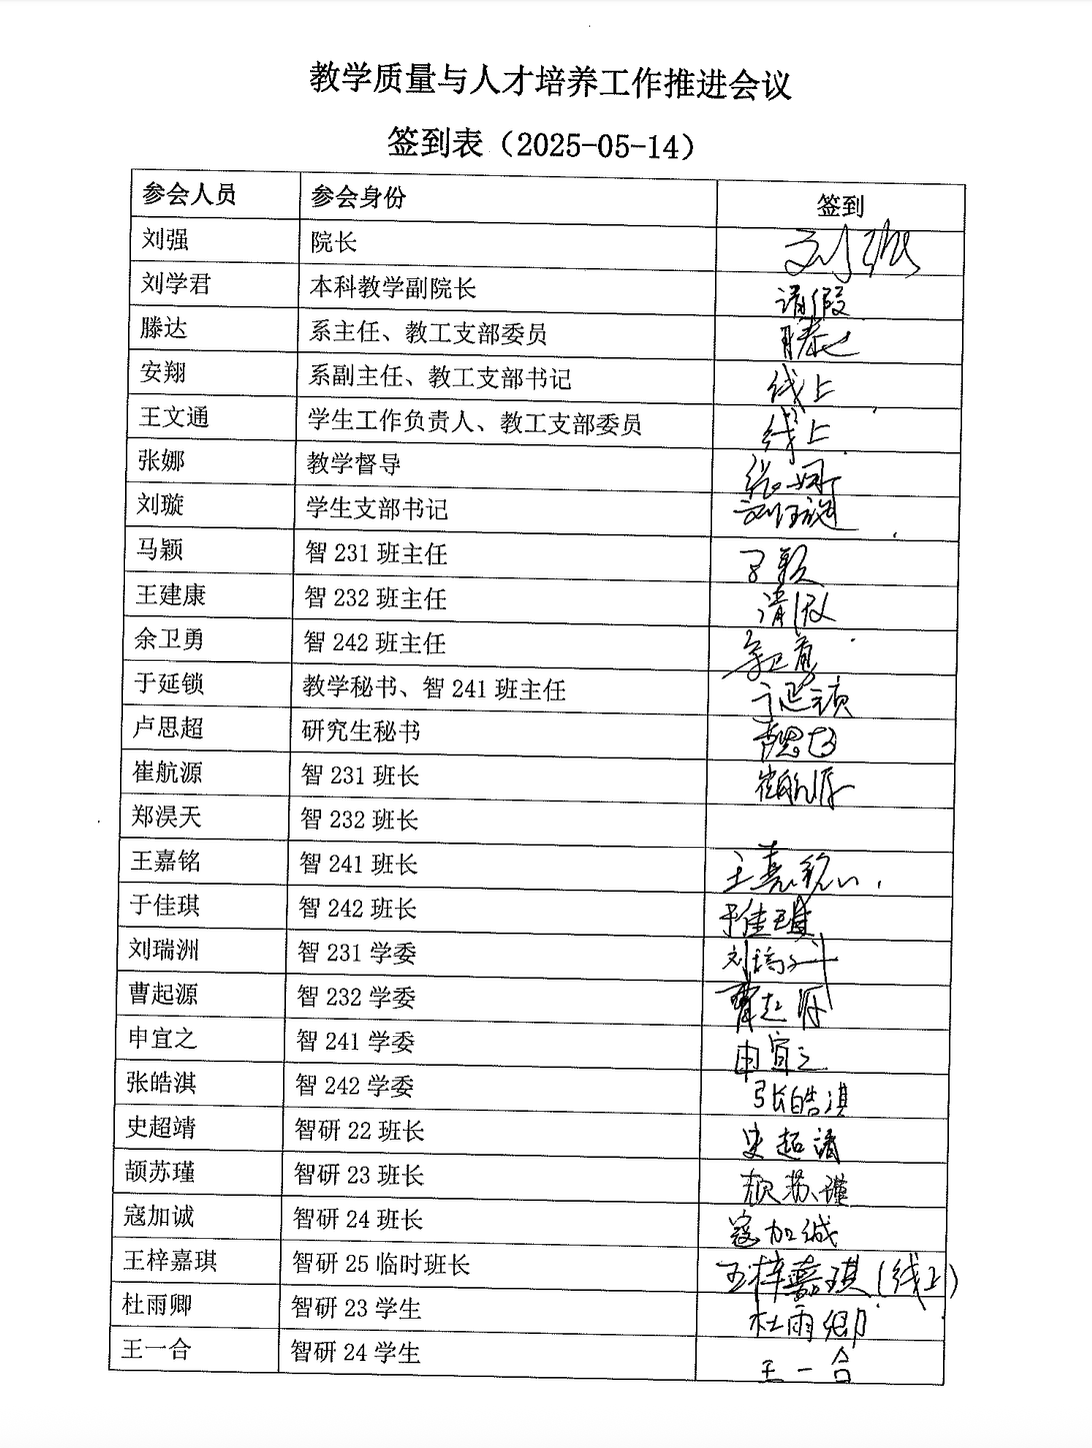 教学质量与人才培养工作推进会议
签到表（2025-05-14）
参会人员 参会身份 签到
刘强 院长 刘强
刘学君 本科教学副院长 请假
滕达 系主任、教工支部委员 滕达
安翔 系副主任、教工支部书记 线上
王文通 学生工作负责人、教工支部委员 线上
张娜 教学督导 张娜
刘璇 学生支部书记 刘璇
马颖 智 231 班主任 马颖
王建康 智 232 班主任 请假
余卫勇 智 242 班主任 余卫勇
于延锁 教学秘书、智 241 班主任 于延锁
卢思超 研究生秘书
崔航源 智 231 班长 崔航源
郑淏天 智 232 班长
王嘉铭 智 241 班长 王嘉铭
于佳琪 智 242 班长 于佳琪
刘瑞洲 智 231 学委 刘瑞洲
曹起源 智 232 学委 曹起源
申宜之 智 241 学委 申宜之
张皓淇 智 242 学委 张皓淇
史超靖 智研 22 班长 史超靖
颉苏瑾 智研 23 班长 颉苏瑾
寇加诚 智研 24 班长 寇加诚
王梓嘉琪 智研 25 临时班长 王梓嘉琪（线上）
杜雨卿 智研 23 学生 杜雨卿
王一合 智研 24 学生 王一合